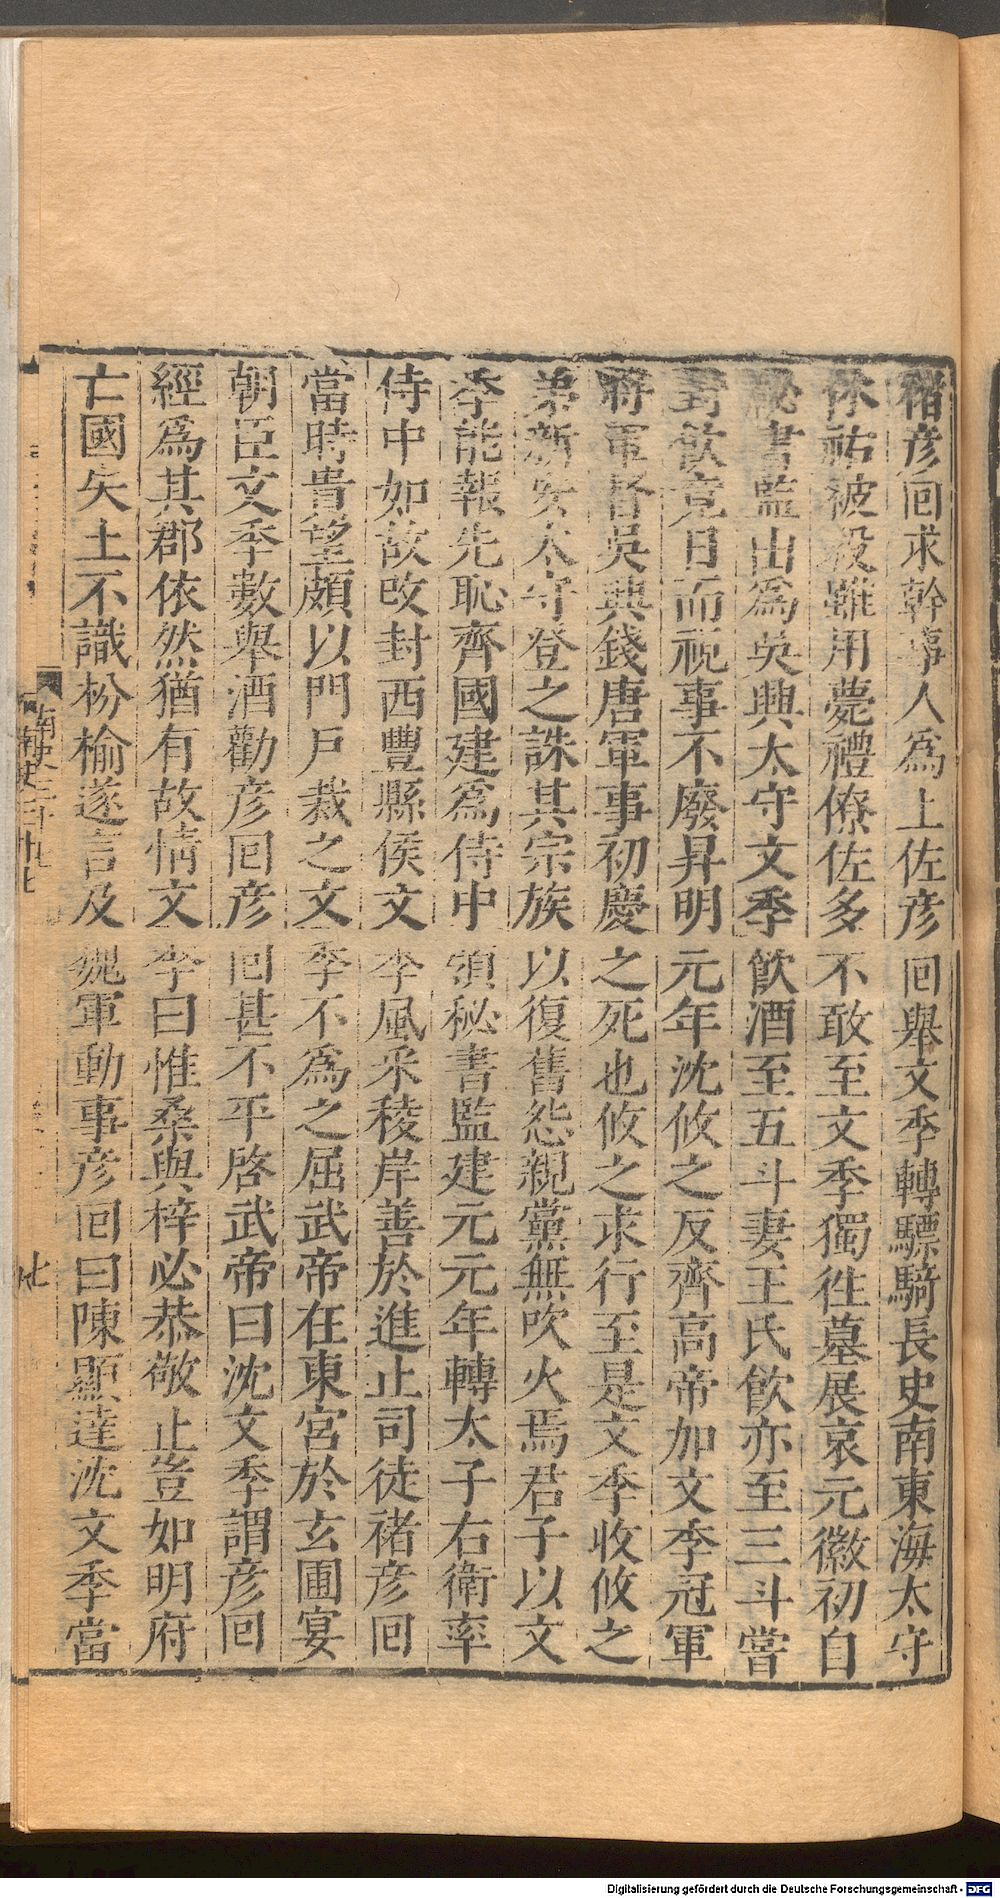 褚彥回求幹事人爲上佐彥回舉文季轉驃騎長史南東海太守
休祐被殺雖用薨禮僚佐多不敢至文季獨往墓展哀元徽初自
祕書監出爲吳興太守文季飲酒至五斗妻王氏飲亦至三斗嘗
對飲竟日而視事不廢昇明元年沈攸之反齊高帝加文季冠軍
將軍督吳興錢唐軍事初慶之死也攸之求行至是文季收攸之
弟新安太守登之誅其宗族以復舊怨親黨無吹火焉君子以文
季能報先恥齊國建爲侍中領祕書監建元元年轉太子右衛率
侍中如故改封西豐縣侯文季風采稜岸善於進止司徒褚彥回
當時貴望頗以門戶裁之文季不爲之屈武帝在東宮於玄圃宴
朝臣文季數舉酒勸彥回彥回甚不平啓武帝曰沈文季謂彥回
經爲其郡依然猶有故情文季曰惟桑與梓必恭敬止豈如明府
亡國失土不識枌榆遂言及魏軍動事彥回曰陳顯達沈文季當
南史三十七
七
Digitalisierung gefördert durch die Deutsche Forschungsgemeinschaft - DFG